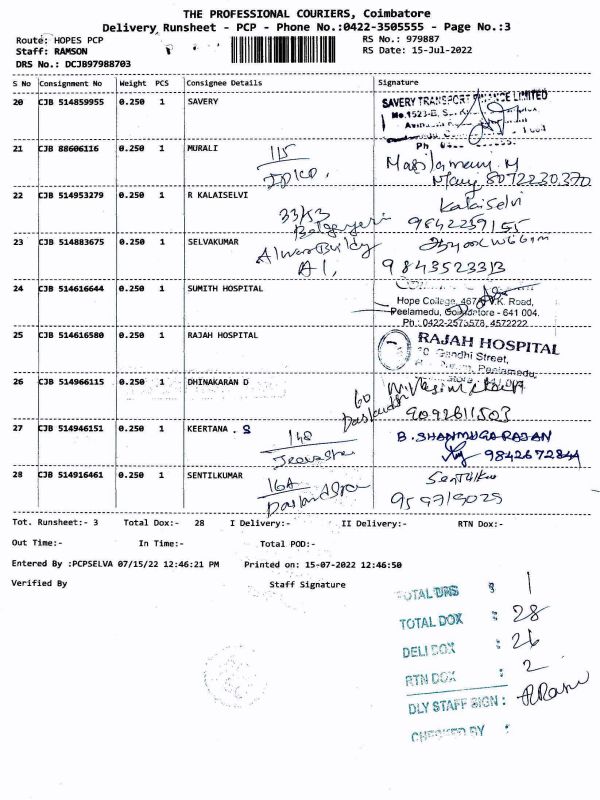 THE PROFESSIONAL COURIERS, Coimbatore
Delivery Runsheet - PCP - Phone No.:0422-3505555 - Page No.:3
Route: HOPES PCP
RS No.: 979887
Staff: RAMSON
RS Date: 15-Jul-2022
DRS No.: DCJB97988703
S No Consignment No Weight PCS Consignee Details Signature
20 CJB 514859955 0.250 1 SAVERY
SAVERY TRANSPORT FINANCE LIMITED
No.1523-E,
Ph
21 CJB 88606116 0.250 1 MURALI
115
Masilamany M
8072230370
22 CJB 514953279 0.250 1 R KALAISELVI
Kalaiselvi
33/53
9842259155
23 CJB 514883675 0.250 1 SELVAKUMAR
A1,
9843523313
24 CJB 514616644 0.250 1 SUMITH HOSPITAL
Hope College, 467 Road,
Peelamedu, Coimbatore - 641 004.
Ph.: 0422-2575578, 4572222
25 CJB 514616580 0.250 1 RAJAH HOSPITAL
RAJAH HOSPITAL
Gandhi Street,
Peelamedu,
26 CJB 514966115 0.250 1 DHINAKARAN D
60
9092611503
27 CJB 514946151 0.250 1 KEERTANA . S
148
B. SHANMUGARAJAN
9842672844
28 CJB 514916461 0.250 1 SENTILKUMAR
16A
Tot. Runsheet:- 3 Total Dox:- 28 I Delivery:- II Delivery:- RTN Dox:-
Out Time:- In Time:- Total POD:-
Entered By :PCPSELVA 07/15/22 12:46:21 PM Printed on: 15-07-2022 12:46:50
Verified By Staff Signature
TOTAL DRS : 1
TOTAL DOX : 28
DELI DOX : 26
RTN DOX : 2
DLY STAFF SIGN :
CHECKED BY :